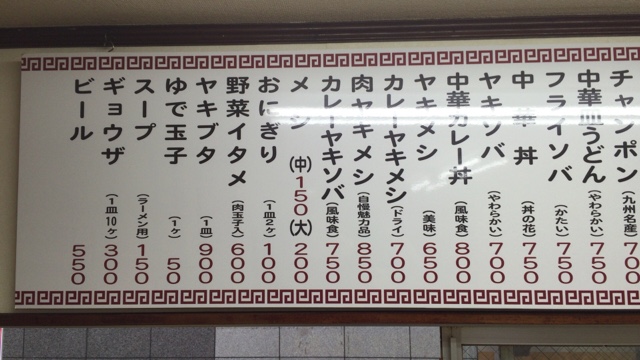 チャンポン（九州名産）700
中華皿うどん（やわらかい）750
フライソバ（かたい）750
中華丼（丼の花）750
ヤキソバ（やわらかい）700
中華カレー丼（風味食）800
ヤキメシ（美味）650
カレーヤキメシ（ドライ）700
肉ヤキメシ（自慢魅力品）850
カレーヤキソバ（風味食）750
メシ（中）150（大）200
おにぎり（1皿2ヶ）100
野菜イタメ（肉玉子入）600
ヤキブタ（1皿）900
ゆで玉子（1ヶ）50
スープ（ラーメン用）150
ギョウザ（1皿10ヶ）300
ビール 550